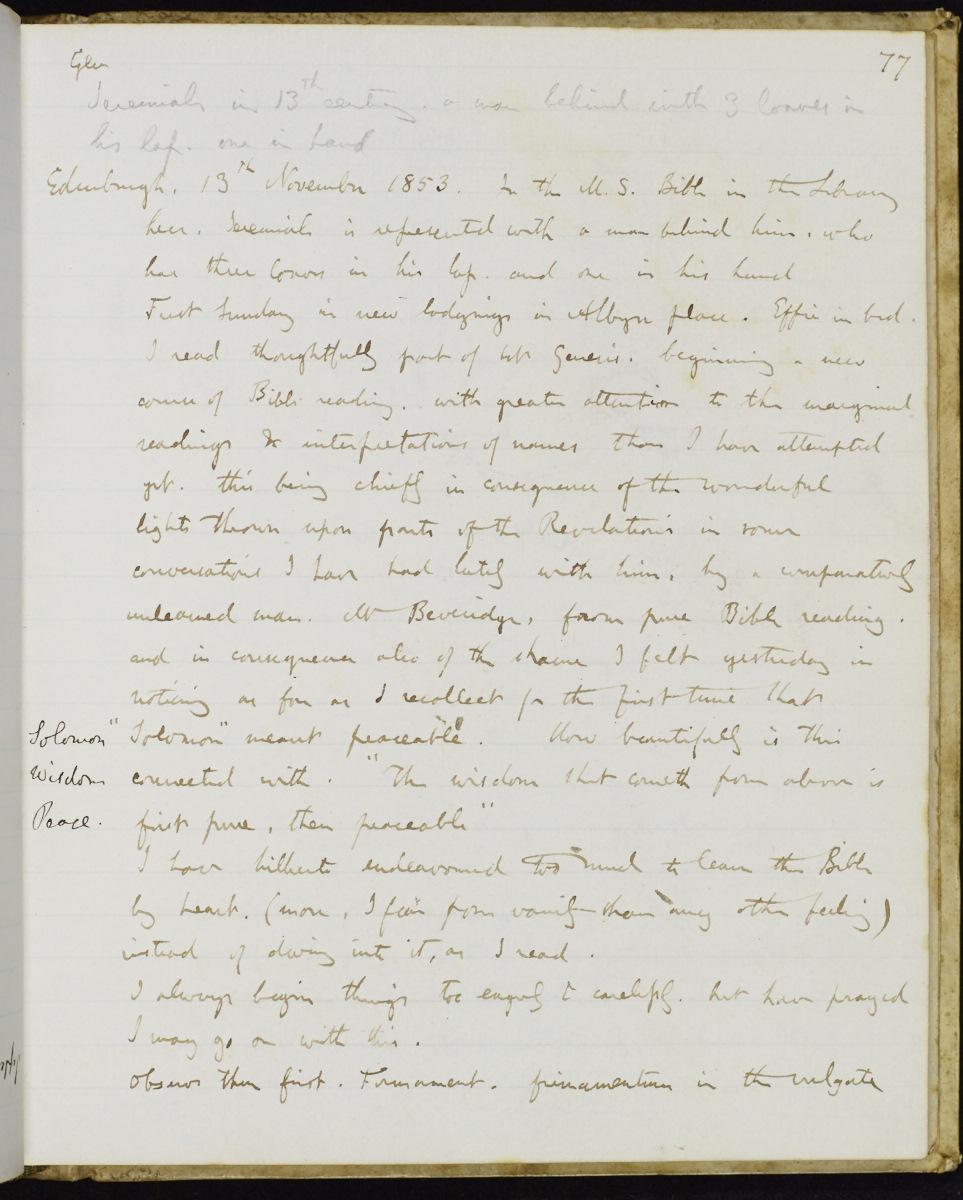 Gen
77
Jeremiah in 13th century. a man behind with 3 loaves in
his lap. one in hand
Edinburgh. 13th November 1853. In the M.S. Bible in the Library
here. Jeremiah is represented with a man behind him, who
has three loaves in his lap. and one in his hand
First Sunday in new lodgings in Albyn place. Effie in bed.
I read thoughtfully part of Genesis. beginning a new
course of Bible reading. with greater attention to the marginal
readings & interpretations of names than I have attempted
yet. this being chiefly in consequence of the wonderful
lights thrown upon parts of the Revelations in some
conversations I have had lately with him, by a comparatively
unlearned man. Mr Beveridge, from pure Bible reading.
and in consequence also of the shame I felt yesterday in
noticing as far as I recollect for the first time that
Solomon "Solomon" meant peaceable. How beautifully is this
Wisdom connected with. "The wisdom that cometh from above is
Peace. first pure, then peaceable"
I have hitherto endeavoured too much to learn the Bible
by heart. (more, I fear from vanity than any other feeling)
instead of diving into it, as I read.
I always begin things too eagerly & carelessly. but have prayed
I may go on with this.
Observe then first. Firmament. firmamentum in the vulgate